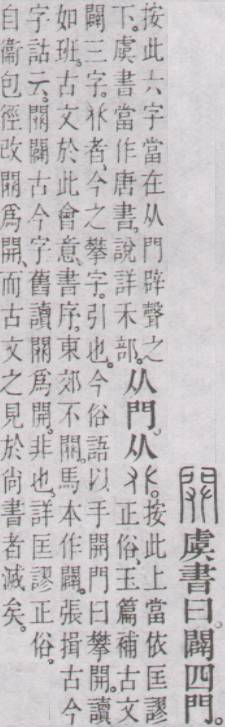 虞書曰。闢四門。
按此六字當在从門辟聲之
下。虞書當作唐書。說詳禾部。
从門。从𠬜。
按此上當依匡謬
正俗、玉篇補古文
闢三字。𠬜者、今之攀字。引也。今俗語以手開門曰攀開。讀
如班。古文於此會意。書序。東郊不𨴂。馬本作闢。張揖古今
字詁云。𨴂闢古今字。舊讀𨴂爲開。非也。詳匡謬正俗。
自衞包徑改𨴂爲開。而古文之見於尙書者滅矣。